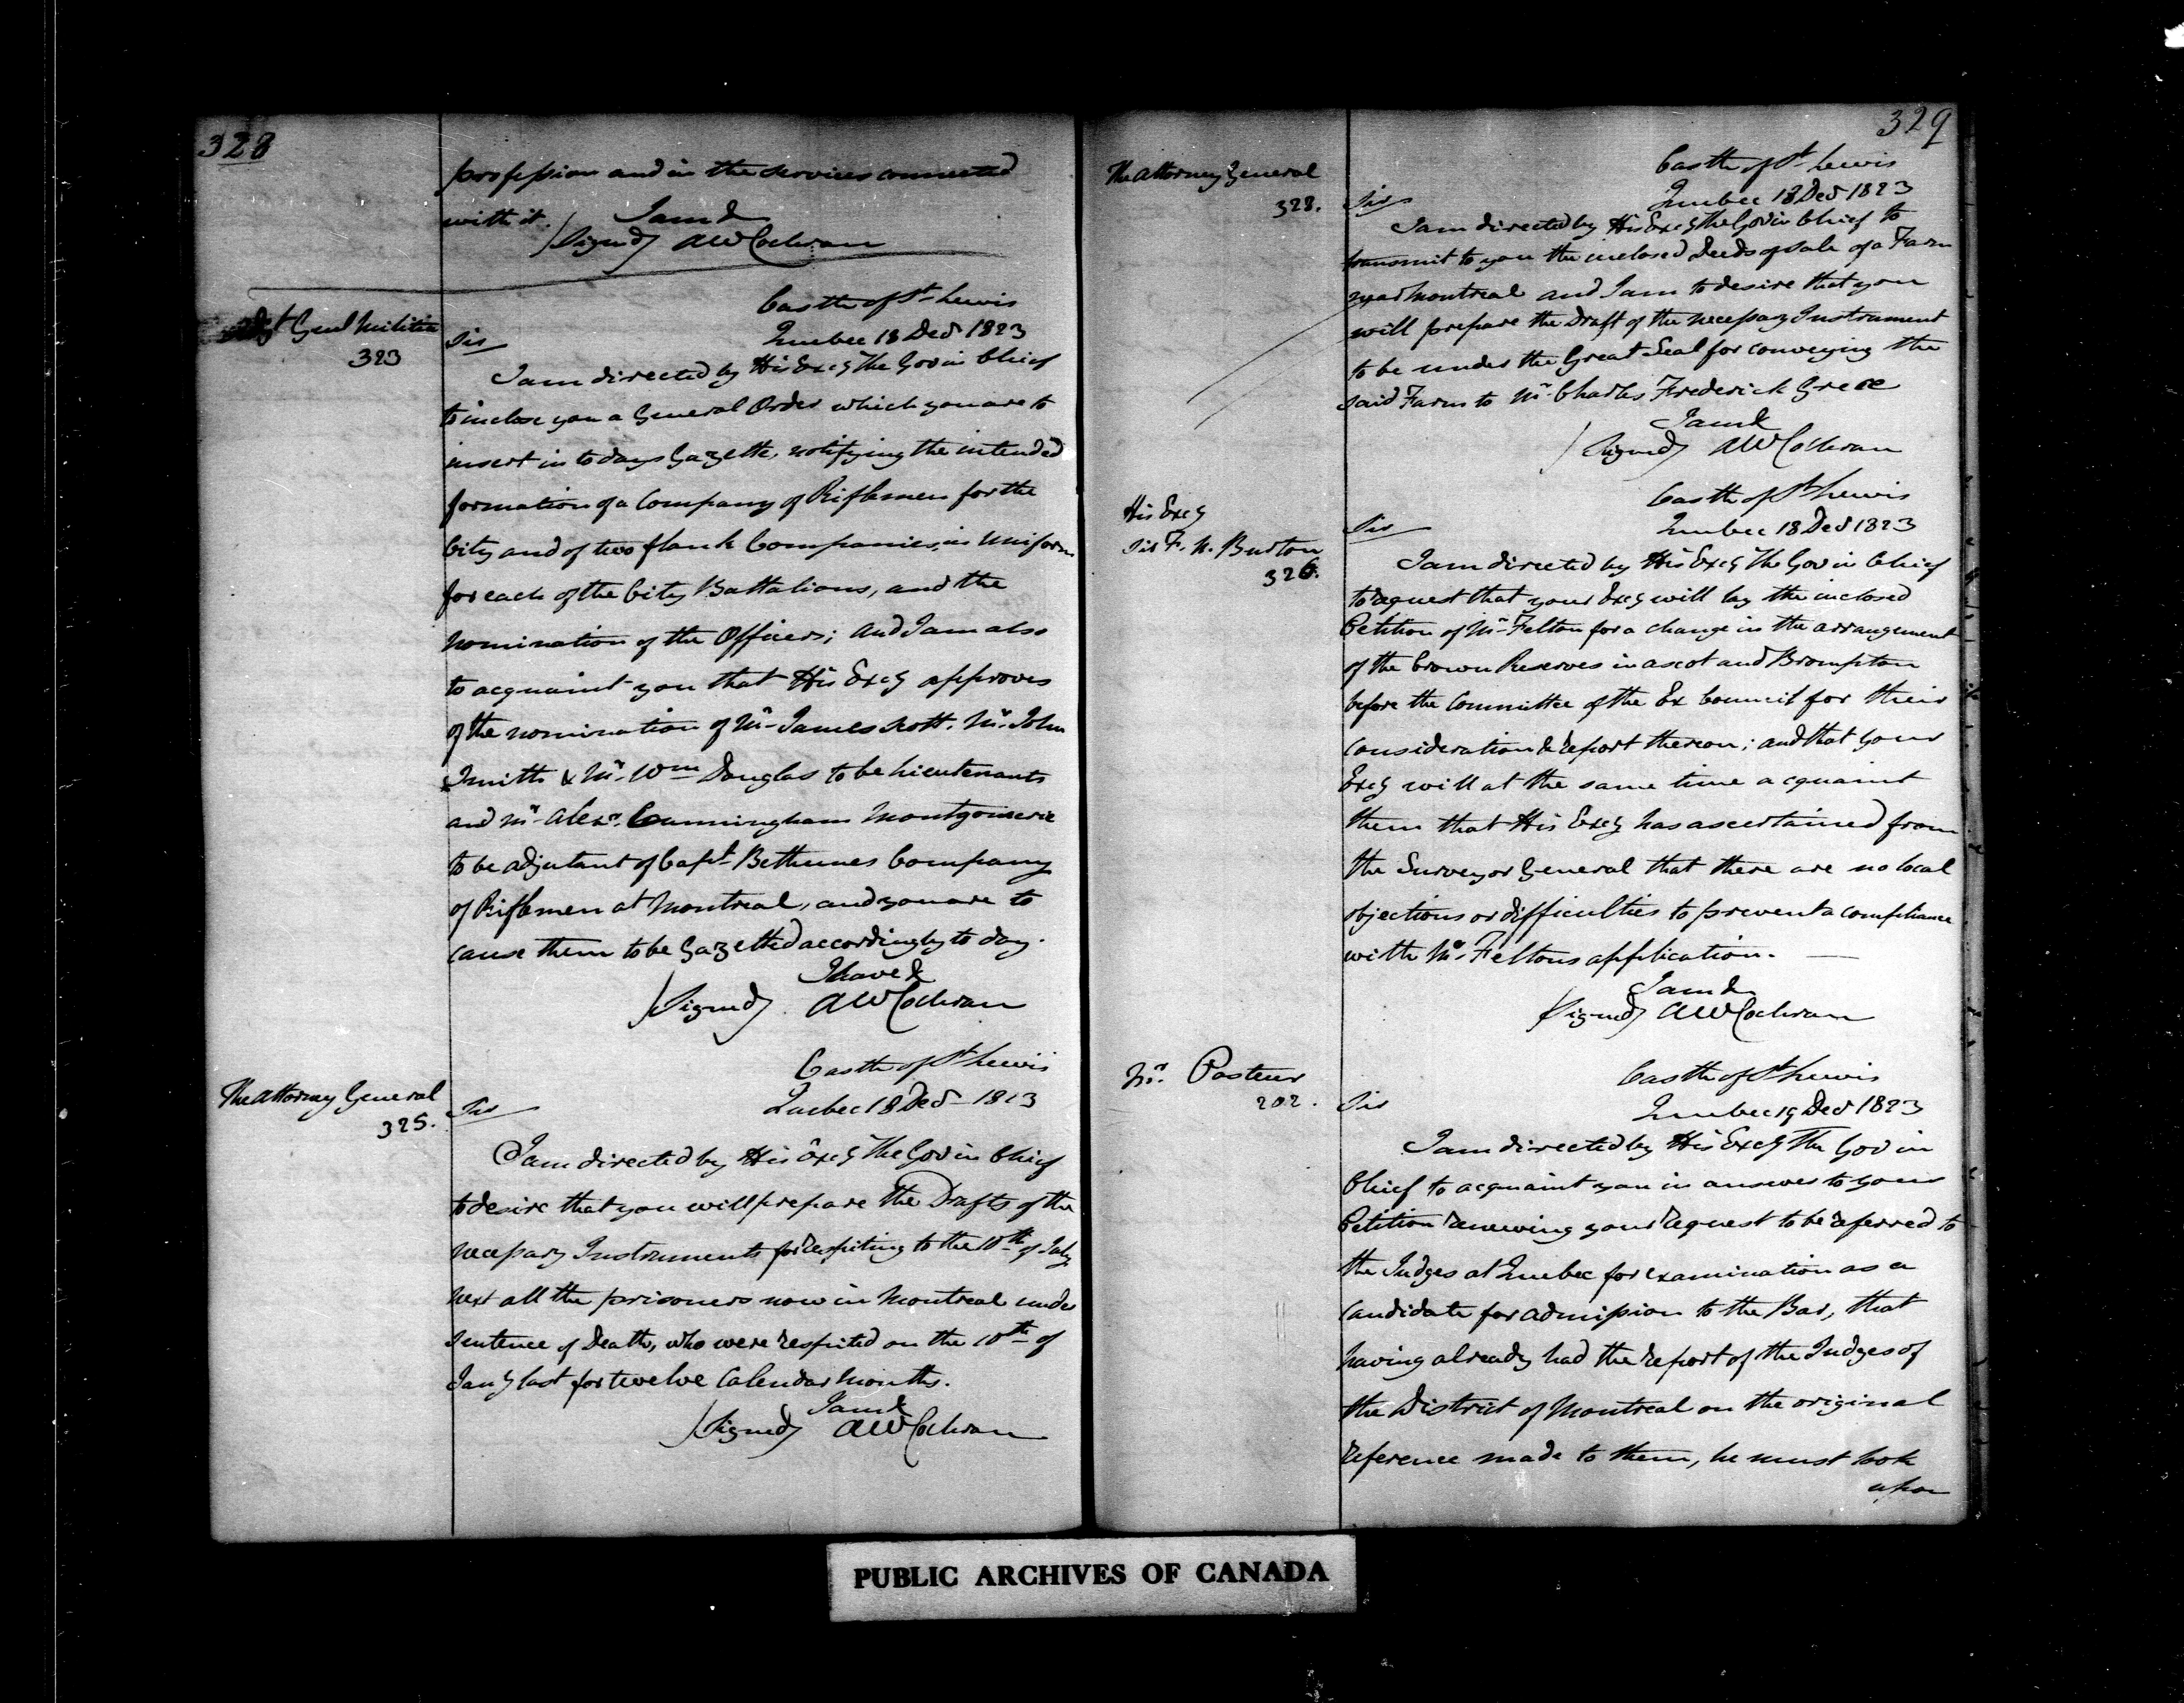 328
profession and in the services connected
with it. I am &
(Signed) AW Cochran
Adjt Genl Militia
323
Castle of St Lewis
Quebec 18 Decr 1823
Sir
I am directed by His Excy the Gov in Chief
to inclose you a General Order which you are to
insert in to days Gazette, notifying the intended
formation of a Company of Riflemen for the
City and of two flank Companies, in Uniform
for each of the City Battalions, and the
nomination of the Officers; and I am also
to acquaint you that His Excy approves
of the nomination of Mr James Scott. Mr John
Smith & Mr Wm Douglas to be Lieutenants
and Mr Alexr Cunningham Montgomerie
to be adjutant of Capt Bethunes Company
of Riflemen at Montreal, and you are to
cause them to be Gazetted accordingly to day.
I have &
(Signed) AW Cochran
The Attorney General
325.
Castle of St Lewis
Quebec 18 Decr 1823
Sir
I am directed by His Excy the Gov in Chief
to desire that you will prepare the Drafts of the
necessary Instruments for respiting to the 10th of July
next all the prisoners now in Montreal under
sentence of Death, who were respited on the 10th of
Jany last for twelve Calendar Months.
I am &
(Signed) AW Cochran
329
The Attorney General
328.
Castle of St Lewis
Quebec 18 Decr 1823
Sir
I am directed by His Excy the Gov in Chief to
transmit to you the inclosed Deeds of Sale of a Farm
near Montreal and I am to desire that you
will prepare the Draft of the necessary Instrument
to be under the Great Seal for conveying the
said Farm to Mr Charles Frederick Grece
I am &
(Signed) AW Cochran
His Excy
Sir F. N. Burton
326.
Castle of St Lewis
Quebec 18 Decr 1823
Sir
I am directed by His Excy the Gov in Chief
to request that your Excy will lay the inclosed
Petition of Mr Felton for a change in the arrangement
of the Crown Reserves in Ascot and Brompton
before the Committee of the Ex Council for their
consideration & report thereon; and that your
Excy will at the same time acquaint
them that His Excy has ascertained from
the Surveyor General that there are no local
objections or difficulties to prevent a compliance
with Mr Feltons application.
I am &
(Signed) AW Cochran
Mr. Pasteur
202.
Castle of St Lewis
Quebec 19 Decr 1823
Sir
I am directed by His Excy The Gov in
Chief to acquaint you in answer to your
Petition renewing your request to be referred to
the Judges at Quebec for examination as a
candidate for admission to the Bar, that
having already had the report of the Judges of
the District of Montreal on the original
reference made to them, he must look
upon
PUBLIC ARCHIVES OF CANADA